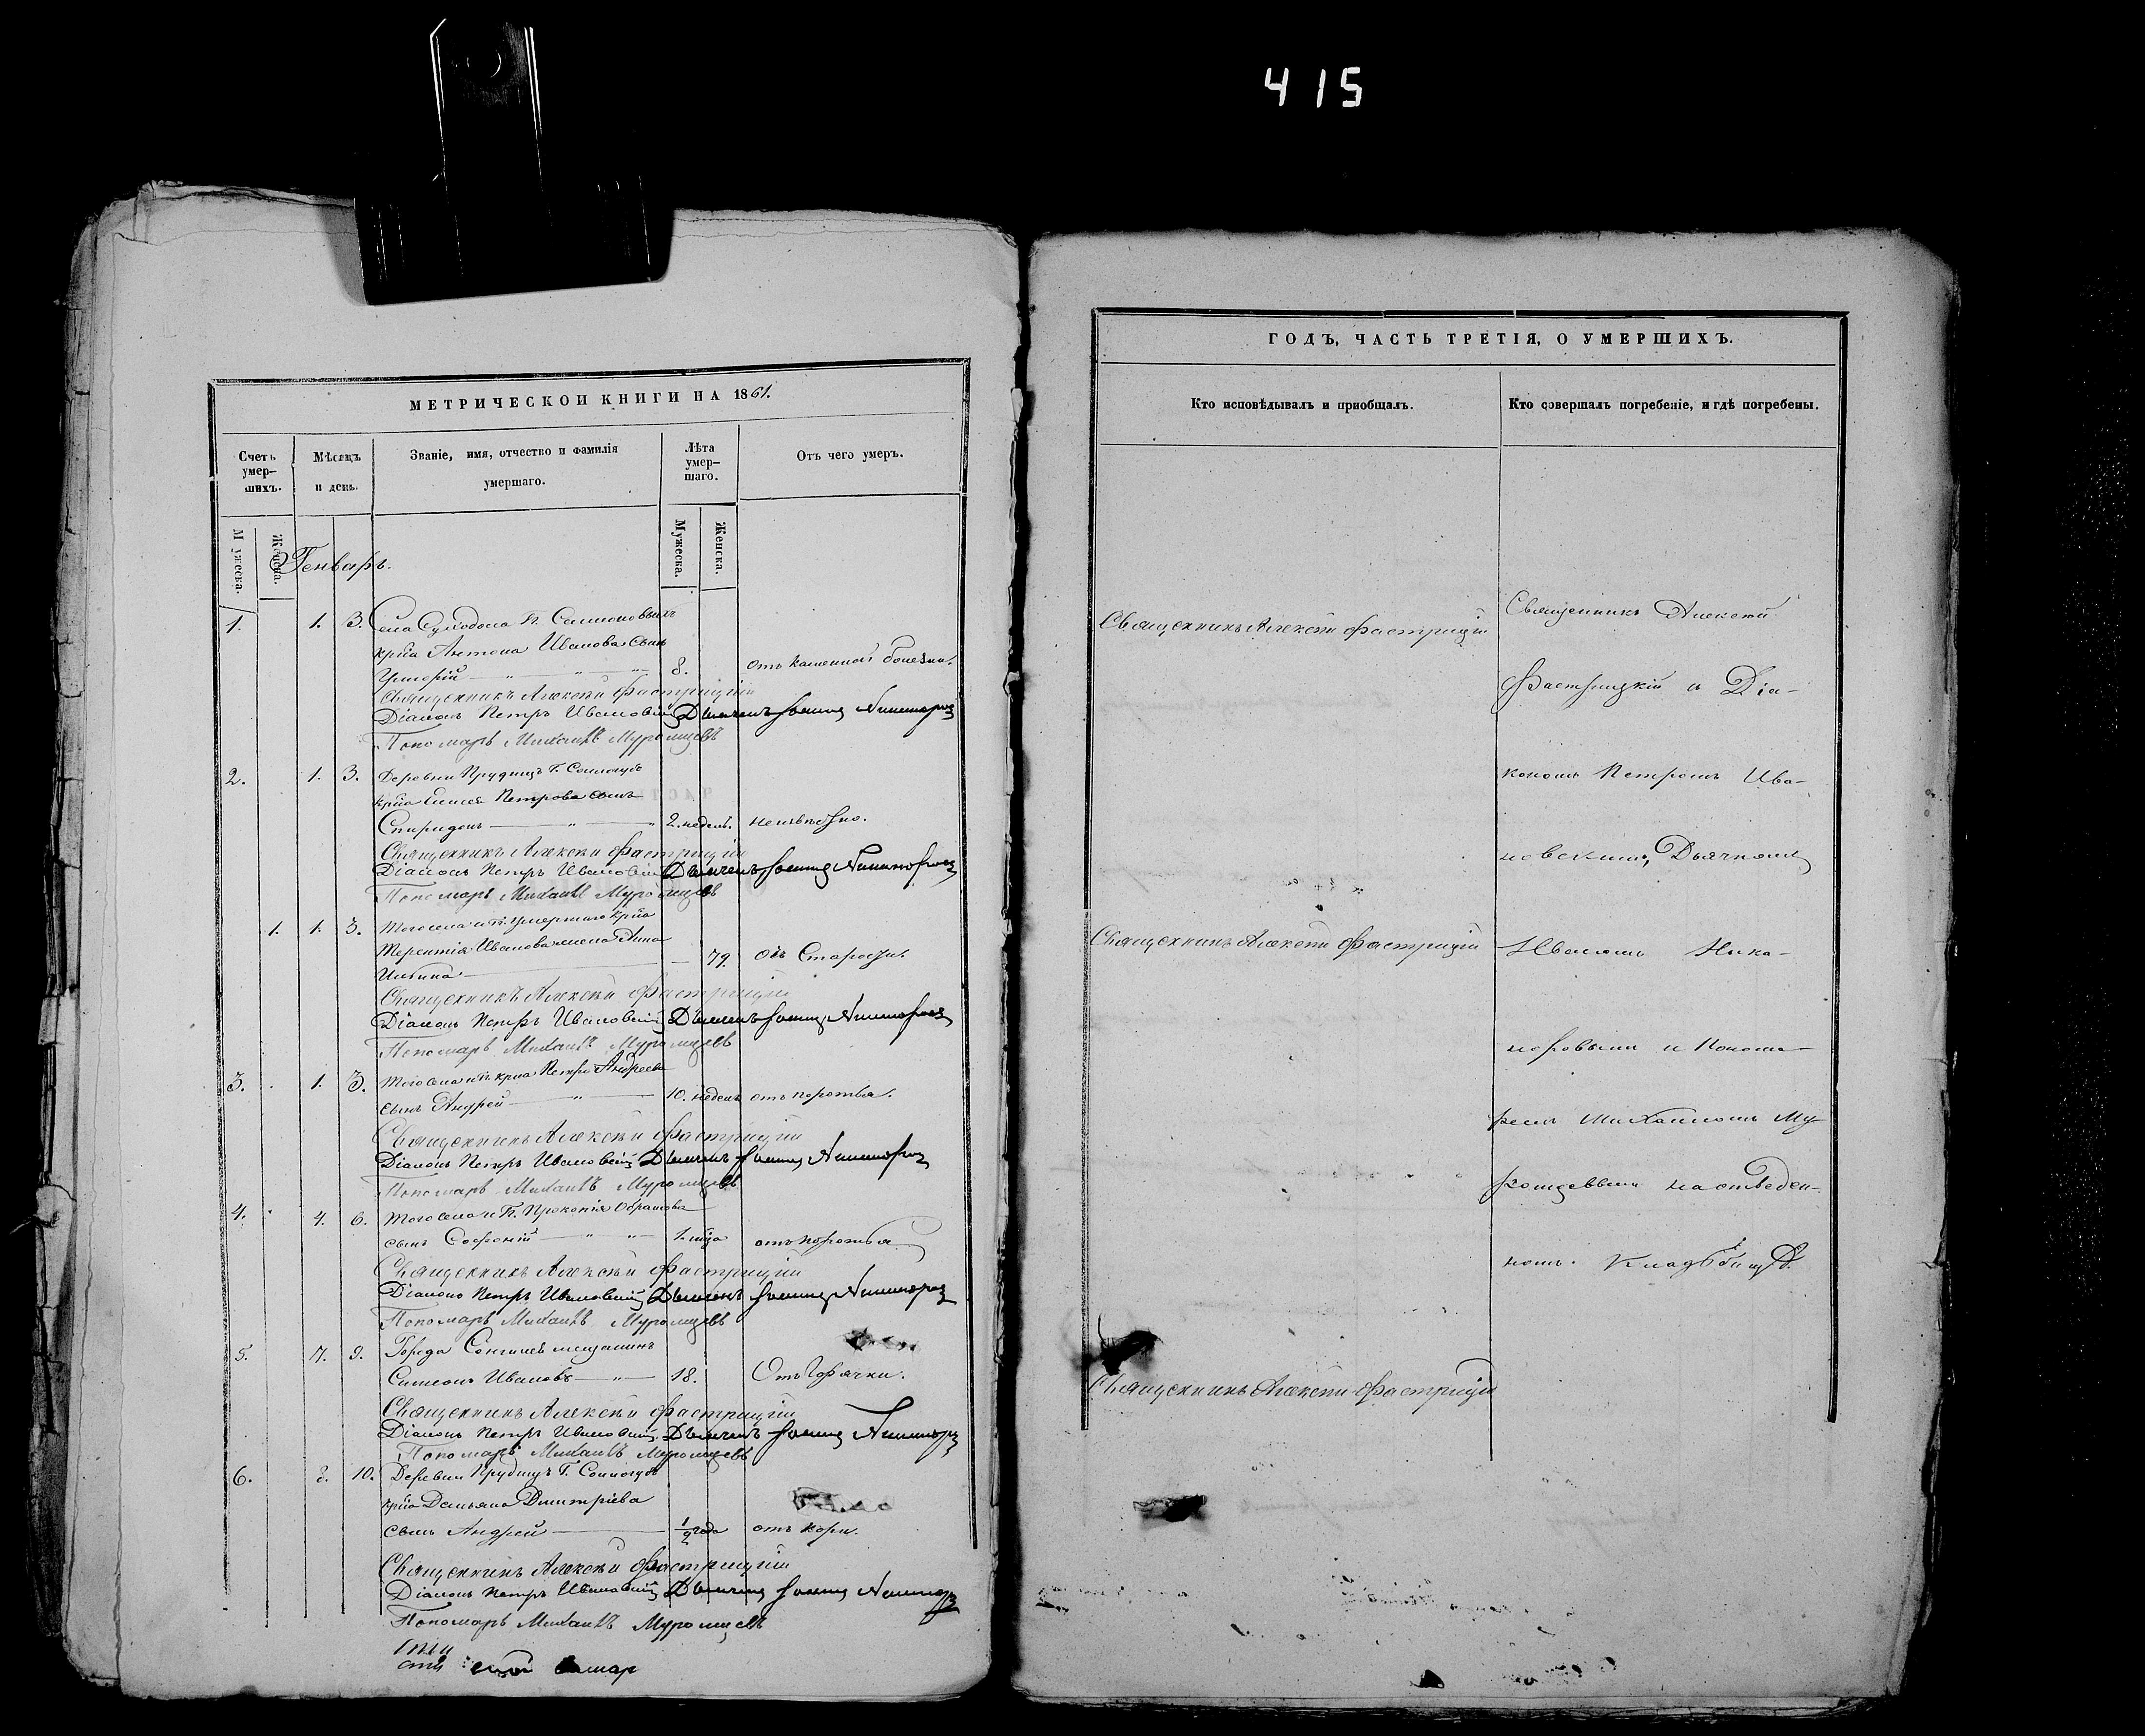 415
МЕТРИЧЕСКОЙ КНИГИ НА 1861.
Счетъ умер-шихъ.
Мѣсяцъ и день.
Званіе, имя, отчество и фамилія умершаго.
Лѣта умер-шаго.
Отъ чего умеръ.
Мужеска.
Женска.
Мужеска.
Женска.
Генварь.
1. 1. 3. Села Суходола Гг. Самсоновыхъ
кр͠на Антона Иванова сынъ
Григорій 8. отъ каменной болезни.
Священникъ Алексѣй Фастрицкій
Діаконъ Петръ Ивановскій Дьячекъ Іоаннъ Никаноровъ
Пономарь Михаилъ Муромцевъ
2. 1. 3. Деревни Прудищъ Г. Сологубъ
кр͠на Петрова сынъ
Спиридонъ 2. недель. неизвѣстно.
Священникъ Алексѣй Фастрицкій
Діаконъ Петръ Ивановскій Дьячекъ Іоаннъ Никаноровъ
Пономарь Михаилъ Муромцевъ
1. 1. 3. Того села и Гг. умершаго кр͠на
Терентія Иванова жена Анна
Ильина 79. Отъ Старости.
Священникъ Алексѣй Фастрицкій
Діаконъ Петръ Ивановскій Дьячекъ Іоаннъ Никаноровъ
Пономарь Михаилъ Муромцевъ
3. 1. 3. Того села и Гг. кр͠на Петра Андреева
сынъ Андрей 10. недель отъ коротья.
Священникъ Алексѣй Фастрицкій
Діаконъ Петръ Ивановскій Дьячекъ Іоаннъ Никаноровъ
Пономарь Михаилъ Муромцевъ
4. 4. 6. Того села и Гг. Прокопія Абрамова
сынъ Софоній 1. м͠ца отъ коротья
Священникъ Алексѣй Фастрицкій
Діаконъ Петръ Ивановскій Дьячекъ Іоаннъ Никаноровъ
Пономарь Михаилъ Муромцевъ
5. 7. 9. Города мещанинъ
Симеонъ Ивановъ 18. Отъ Горячки.
Священникъ Алексѣй Фастрицкій
Діаконъ Петръ Ивановскій Дьячекъ Іоаннъ Никаноровъ
Пономарь Михаилъ Муромцевъ
6. 8. 10. Деревни Прудищъ Г. Сологубъ
кр͠на Демьяна Дмитріева
сынъ Андрей 1/2 года отъ кори.
Священникъ Алексѣй Фастрицкій
Діаконъ Петръ Ивановскій Дьячекъ Іоаннъ Никаноровъ
Пономарь Михаилъ Муромцевъ
ГОДЪ, ЧАСТЬ ТРЕТІЯ, О УМЕРШИХЪ.
Кто исповѣдывалъ и приобщалъ.
Кто совершалъ погребеніе, и гдѣ погребены.
Священникъ Алексѣй Фастрицкій
Священникъ Алексѣй Фастрицкій
Священникъ Алексѣй Фастрицкій
Священникъ Алексей
Фастрицкій съ Діа-
кономъ Петромъ Ива-
новскимъ, Дьячкомъ
Иваномъ Ника-
норовымъ и Понома-
ремъ Михаиломъ Му-
ромцевымъ на отведен-
номъ Кладбищѣ.